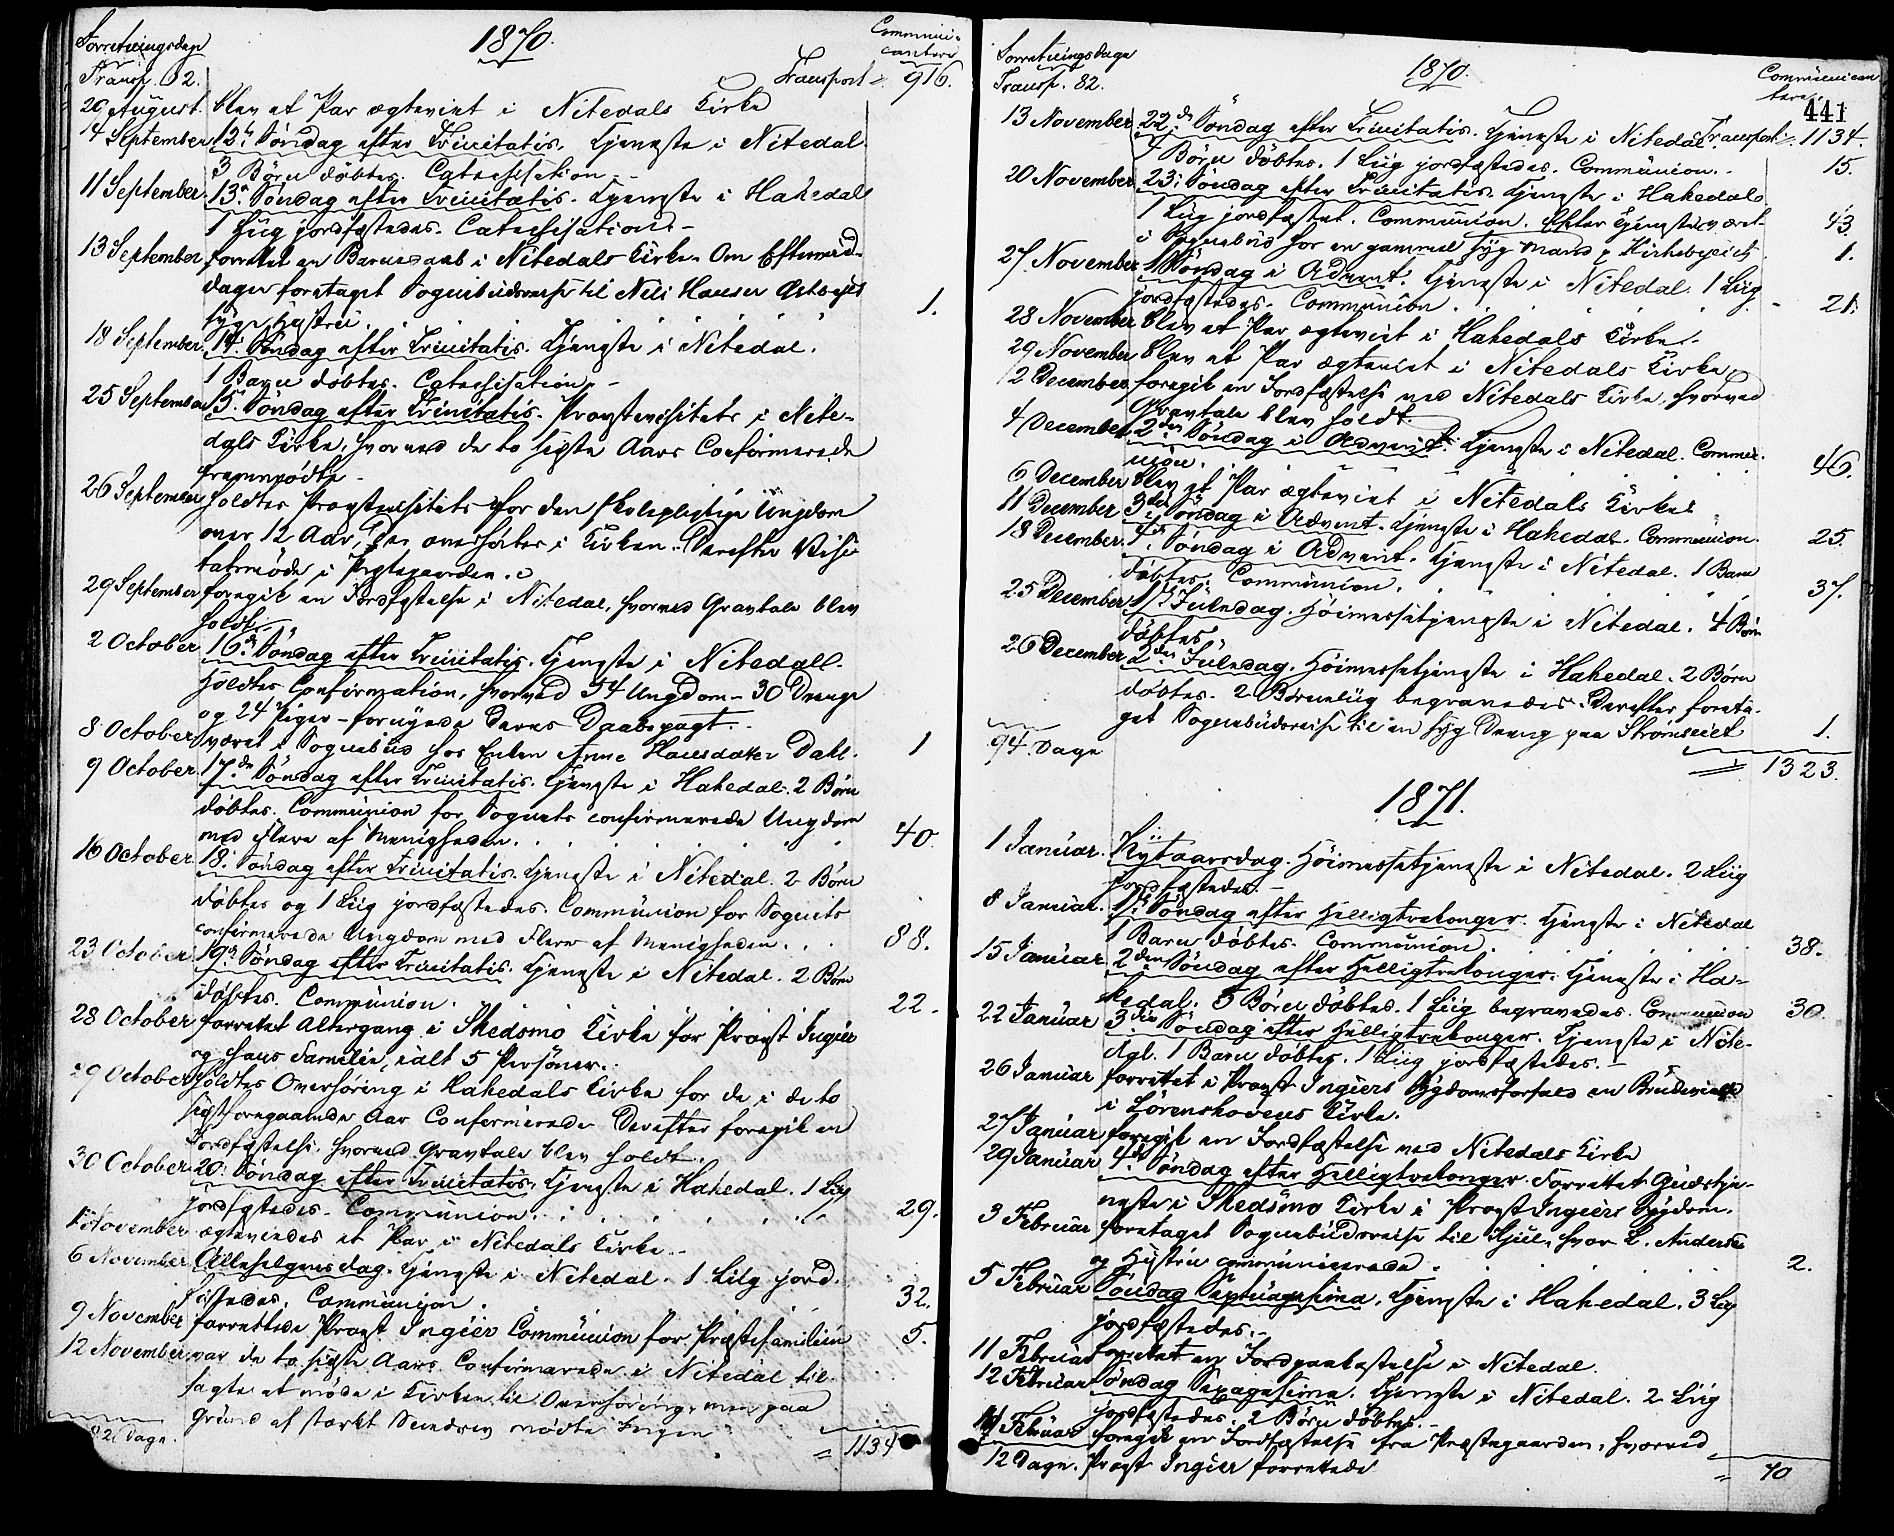 Forretningsdage 1870. Communi-
cantere
Transp. 62. Transport = 916.
20 August. blev et Par ægteviet i Nitedals Kirke
4 September 12te Søndag efter Trinitatis. Tjeneste i Nitedal
3 Børn døbtes. Catechisation. -
11 September 13de Søndag efter Trinitatis. Tjeneste i Hakedal
1 Liig jordfæstedes. Catechisation. -
13 September forrettet en Barnedaab i Nitedals Kirke. Om Eftermid-
dagen foretaget Sognebudsreise til Hansen 1.
syge Hustru.
18 September 14. Søndag efter Trinitatis. Tjeneste i Nitedal.
1 Barn døbtes. Catechisation. -
25 September 15. Søndag efter Trinitatis. Provstevisitats i Nite-
dals Kirke, hvorved de to sidste Aars Confirmerede
fremmødte.
26 September holdtes Provstevisitats for den skolepligtige Ungdom
over 12 Aar, der overhørtes i Kirken. Derefter Visi-
tatsmøde i Præstegaarden.
29 September foregik en Jordfæstelse i Nitedal, hvorved Gravtale blev
holdt.
2 October 16de Søndag efter Trinitatis. Tjeneste i Nitedall.
Holdtes Confirmation, hvorved 54 Ungdom - 30 Drenge
og 24 Piger - fornyede deres Daabspagt. -
8 October været i Sognebud hos Enken Anne Hansdatter Dahl. 1
9 October 17de Søndag efter Trinitatis. Tjeneste i Hakedal. 2 Børn
døbtes. Communion for Sognets confirmerede Ungdom
med Flere af Menigheden. 40.
16 October 18. Søndag efter Trinitatis. Tjeneste i Nitedal. 2 Børn
døbtes og 1 Liig jordfæstedes. Communion for Sognets
confirmerede Ungdom med Flere af Menigheden. 88.
23 October 19de Søndag efter Trinitatis. Tjeneste i Nitedal. 2 Børn
døbtes. Communion. 22.
28 October forrettet Altergang i Skedsmo Kirke for Provst Ingier
og hans Familie, ialt 5 Personer.
29 October holdtes Overhøring i Hakedals Kirke for de i de to
sidstforegaaende Aar Confirmerede. Derefter foregik en
Jordfæstelse, hvorved Gravtale blev holdt.
30 October 20. Søndag efter Trinitatis. Tjeneste i Hakedal. 1 Liig
jordfæstedes. Communion. 29.
November ægteviedes et Par i Nitedals Kirke. -
6 November Allehelgensdag. Tjeneste i Nitedal. 1 Liig jord-
fæstedes. Communion. 32.
9 November forrettede Provst Ingier Communion for Præstefamilien 5.
12 November var de to sidste Aars Confirmerede i Nitedal til-
sagte at møde i Kirken til Overhøring, men paa
Grund af stærkt Sneedrev mødte Ingen
82 Dage. = 1134
Forretningsdage 1870. Communican-
tere
441
Transp. 82. Transport = 1134.
13 November 22de Søndag efter Trinitatis. Tjeneste i Nitedal.
4 Børn døbtes. 1 Liig jordfæstedes. Communion. 15.
20 November 23. Søndag efter Trinitatis. Tjeneste i Hakedal.
1 Liig jordfæstet. Communion. Efter Tjenesten været 43.
i Sognebud hos en gammel syg Mand p. Kirkebyeiet 1.
27. November 1 Søndag i Advent. Tjeneste i Nitedal. 1 Liig
jordfæstedes. Communion. 21.
28 November blev et Par ægteviet i Hakedals Kirke.
29 November blev et Par ægteviet i Nitedals Kirke.
2 December foregik en Jordfæstelse ved Nitedals Kirke, hvorved
Gravtale blev holdt.
4 December 2den Søndag i Advent. Tjeneste i Nitedal. Commu-
nion. 46.
6 December blev et Par ægteviet i Nitedals Kirke.
11 December 3die Søndag i Advent. Tjeneste i Hakedal. Communion. 25.
18 December 4de Søndag i Advent. Tjeneste i Nitedal. 1 Barn
døbtes. Communion. 37.
25 December 1ste Juledag. Høimessetjeneste i Nitedal. 4 Børn
døbtes.
26 December 2den Juledag. Høimessetjeneste i Hakedal. 2 Børn
døbtes. 2 Børneliig begravedes. Derefter foreta-
get Sognebudsreise til en syg Dreng paa Strømseiet 1.
94. Dage = 1323.
1871.
1 Januar. Nytaarsdag. Høimessetjeneste i Nitedal. 2 Liig
jordfæstedes. -
8 Januar. 1ste Søndag efter Helligtrekonger. Tjeneste i Nitedal
1 Barn døbtes. Communion. 38.
15 Januar 2den Søndag efter Helligtrekonger. Tjeneste i Ha-
kedal. 5 Børn døbtes. 1 Liig begravedes. Communion 30.
22 Januar 3die Søndag efter Helligtrekonger. Tjeneste i Nite-
dal. 1 Barn døbtes. 1 Liig jordfæstedes. -
26 Januar forrettet i Provst Ingiers Sygdomsforfald en Brudevielse
i Lørenskovens Kirke.
27 Januar foregik en Jordfæstelse ved Nitedals Kirke
29 Januar 4de Søndag efter Helligtrekonger. Forrettet Gudstje-
neste i Skedsmo Kirke i Provst Ingiers Sygdom.
3 Februar foretaget Sognebudsreise til Kjul, hvor L. Andersen
og Hustru communicerede. 2.
5 Februar Søndag Septuagesima. Tjeneste i Hakedal. 3 Liig
jordfæstedes. -
11 Februar forrettet en Jordpaakastelse i Nitedal.
12 Februar Søndag Sexagesima. Tjeneste i Nitedal. 2 Liig
jordfæstedes. 2 Børn døbtes. -
Februar foregik en Jordfæstelse fra Præstegaarden, hvorved
12 Dage. Provst Ingier forrettede = 70